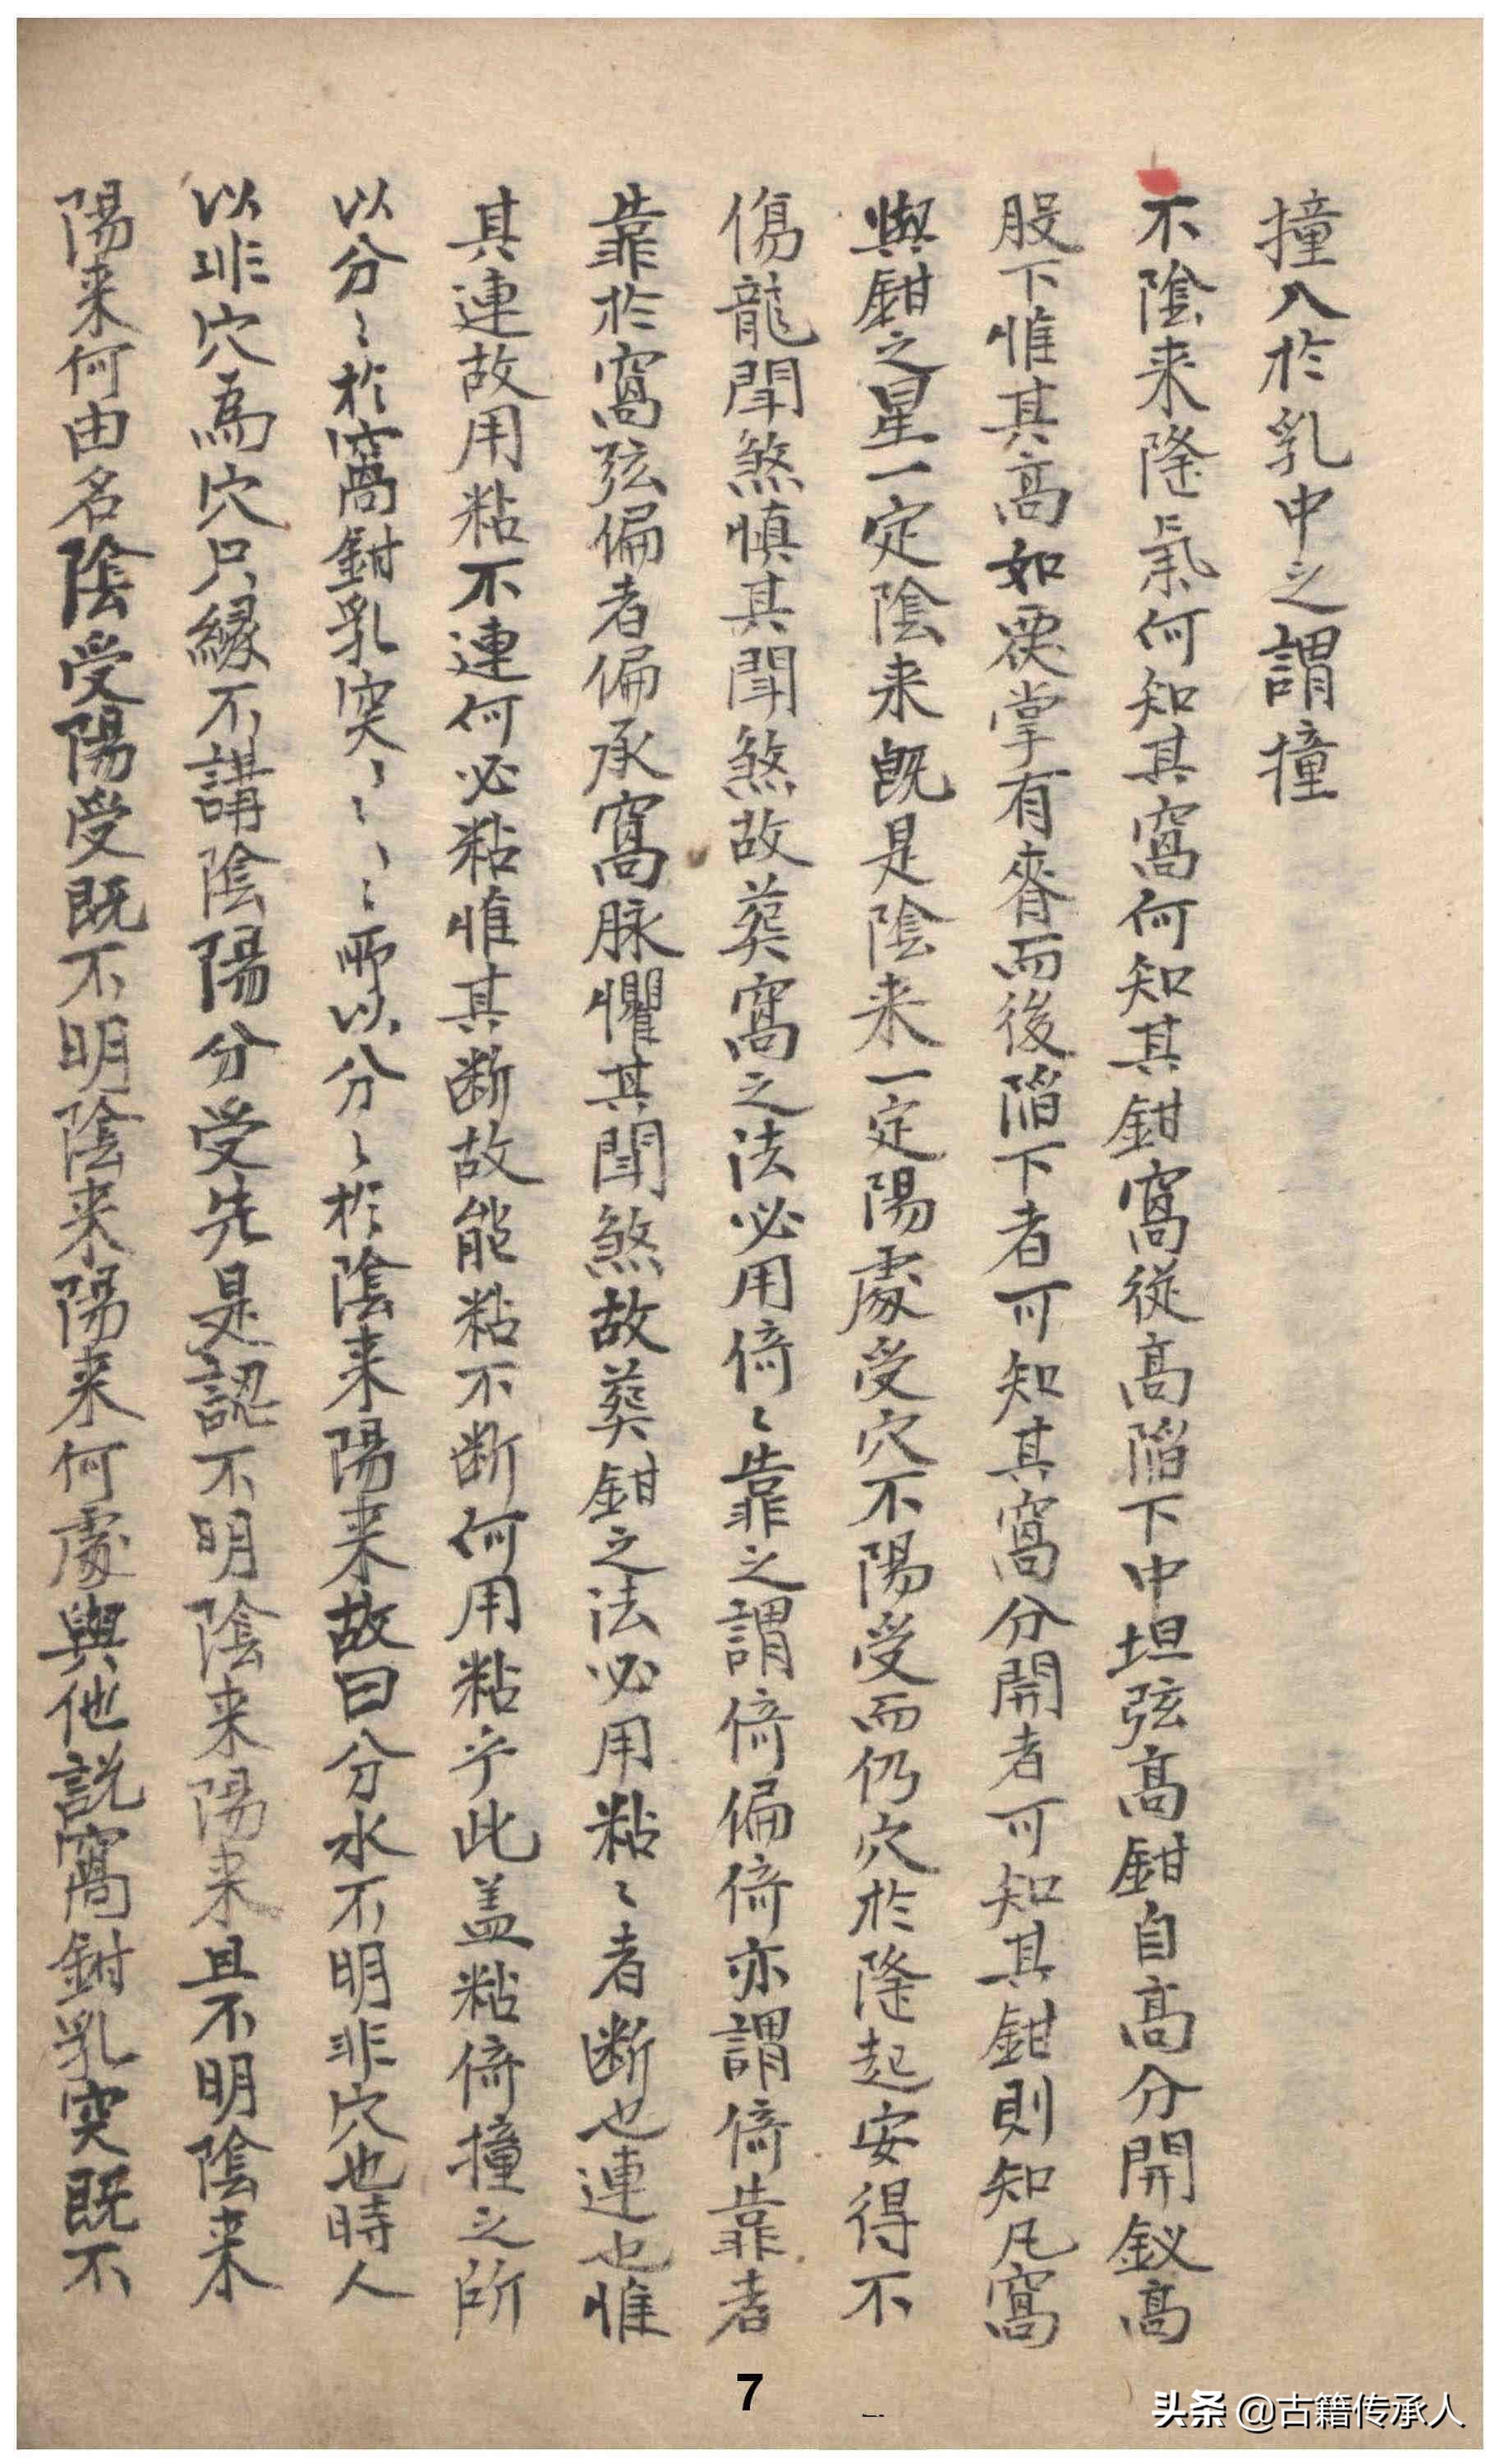 撞入於乳中之謂撞
不陰来隆氣何知其窩何知其鉗窩從高陷下中坦弦高鉗自高分開釵高
股下惟其高如覆掌有脊而後陷下者可知其窩分開者可知其鉗則知凡窩
與鉗之星一定陰来既是陰来一定陽處受穴不陽受而仍穴於隆起安得不
傷龍闘煞慎其闘煞故葬窩之法必用倚〻靠之謂倚偏倚亦謂倚靠者
靠於窩弦偏者偏承窩脉懼其闘煞故葬鉗之法必用粘〻者断也連也惟
其連故用粘不連何必粘惟其断故能粘不断何用粘乎此盖粘倚撞之所
以分〻於窩鉗乳突〻〻〻〻〻所以分〻於陰来陽来故曰分水不明非穴也時人
以非穴為穴只縁不講陰陽分受先是認不明陰来陽来且不明陰来
陽来何由名陰受陽受既不明陰来陽来何處與他説窩鉗乳突既不
7
头条 @古籍传承人